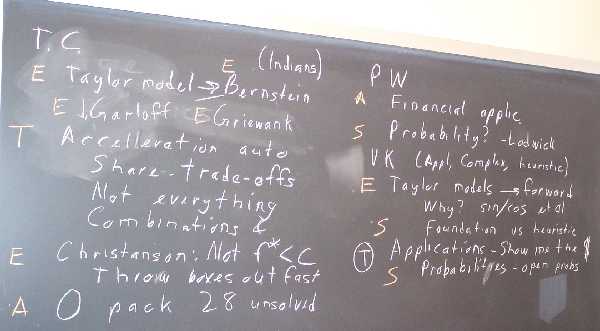 T.C
E (Indians)
E Taylor model → Bernstein
E J.Garloff E Griewank
T Accelleration auto
Share - trade-offs
Not everything
Combinations &
E Christanson: Not f* < C
Throw boxes out fast
A O pack 28 unsolved
PW
A Financial applic.
S Probability? - Lodwick
VK (Appl, Complex, heuristic)
E Taylor models → forward
Why? sin/cos et al
S Foundation vs heuristic
T Applications - Show me the $
S Probabilities - open probs